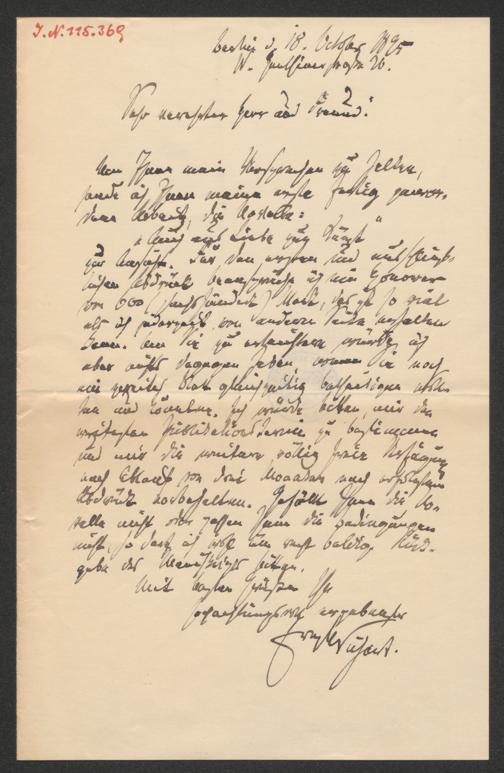 I.N. 115.369
Berlin d. 18. October 1895
W. Genthinerstraße 26.
Sehr verehrter Herr und Freund!
Um Ihnen mein Versprechen zu halten,
sende ich Ihnen meine erste fertig gewor-
dene Arbeit, die Novelle:
"Auch aus Liebe zur Kunst"
zur Ansicht. Für den ersten und ausschließ-
lichen Abdruck beanspruche ich ein Honorar
von 600 (sechshundert) Mark, das ist so viel
als ich jederzeit von anderer Seite erhalten
kann. Um Sie zu erleichtern würde ich
aber nichts dagegen haben, wenn Sie noch
ein zweites Blatt gleichzeitig betheiligen woll-
ten und könnten. Ich würde bitten, mir den
Publicationstermin zu bestimmen
und mir die weitere völlig freie Verfügung
nach Ablauf von drei Monaten nach erfolgtem
Abdruck vorbehalten. Gefällt Ihnen die No-
velle nicht oder passen Ihnen die Bedingungen
nicht, so darf ich wohl um recht baldige Rück-
gabe des Manuskriptes bitten.
Mit besten Grüßen Ihr
hochachtungsvoll ergebenster
Ernst Wichert.